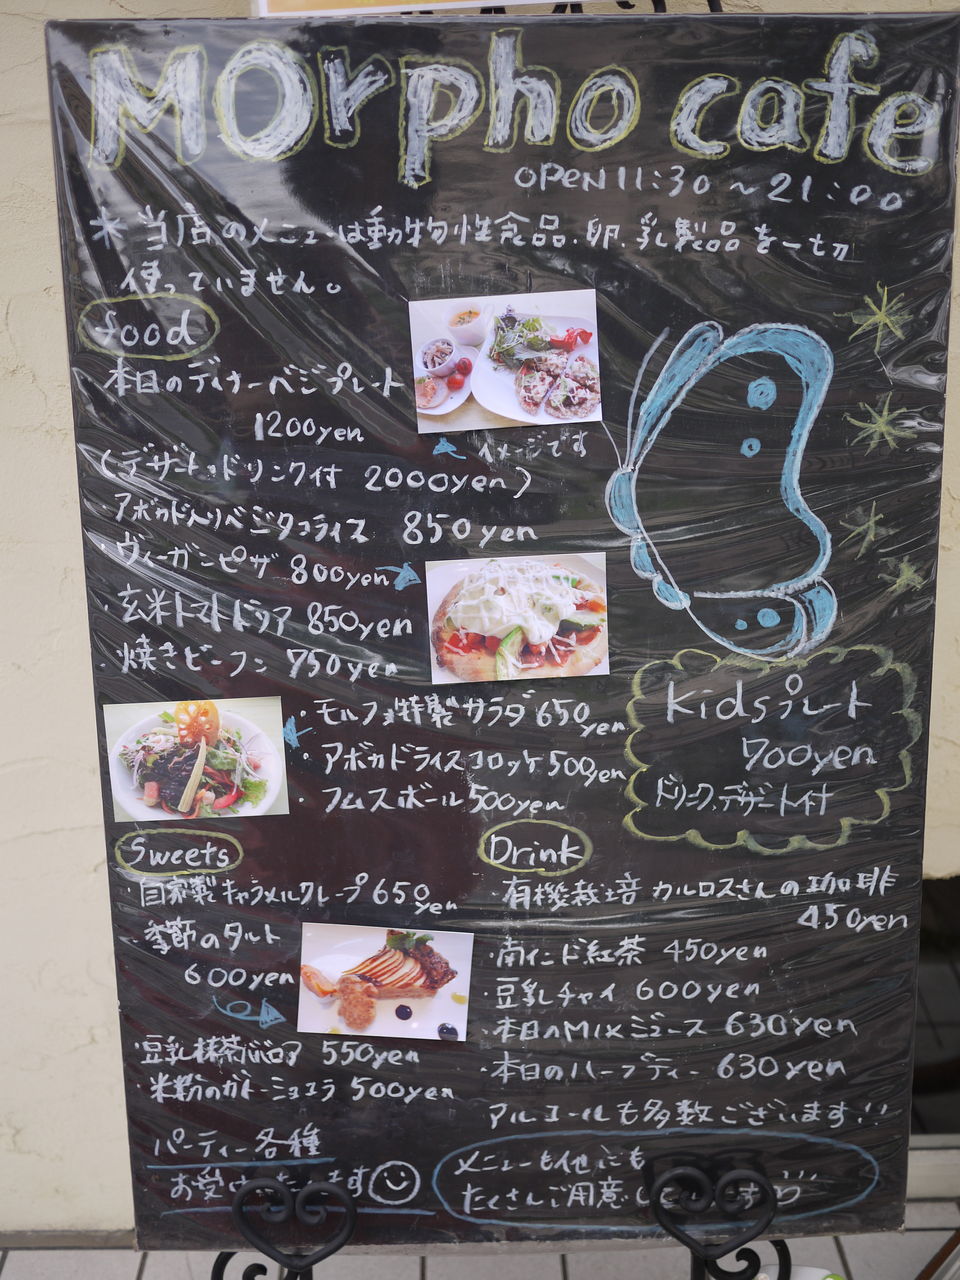 MOrpho cafe
OPEN 11:30 ~ 21:00
※当店のメニューは動物性食品、卵、乳製品を一切
使っていません。
food
本日のディナーベジプレート
1200yen
イメージです
(デザート・ドリンク付 2000yen)
・アボカド入りベジタコライス 850yen
・ヴィーガンピザ 800yen
・玄米トマトドリア 850yen
・焼きビーフン 750yen
・モルフォ特製サラダ 650yen
・アボカドライスコロッケ 500yen
・フムスボール 500yen
Kidsプレート
700yen
ドリンク、デザート付
Sweets
・自家製キャラメルクレープ 650yen
・季節のタルト
600yen
・豆乳抹茶ババロア 550yen
・米粉のガトーショコラ 500yen
パーティー各種
お受け
Drink
・有機栽培 カルロスさんの珈琲
450yen
・南インド紅茶 450yen
・豆乳チャイ 600yen
・本日のMIXジュース 630yen
・本日のハーブティー 630yen
アルコールも多数ございます!!
メニューも他にも
たくさんご用意